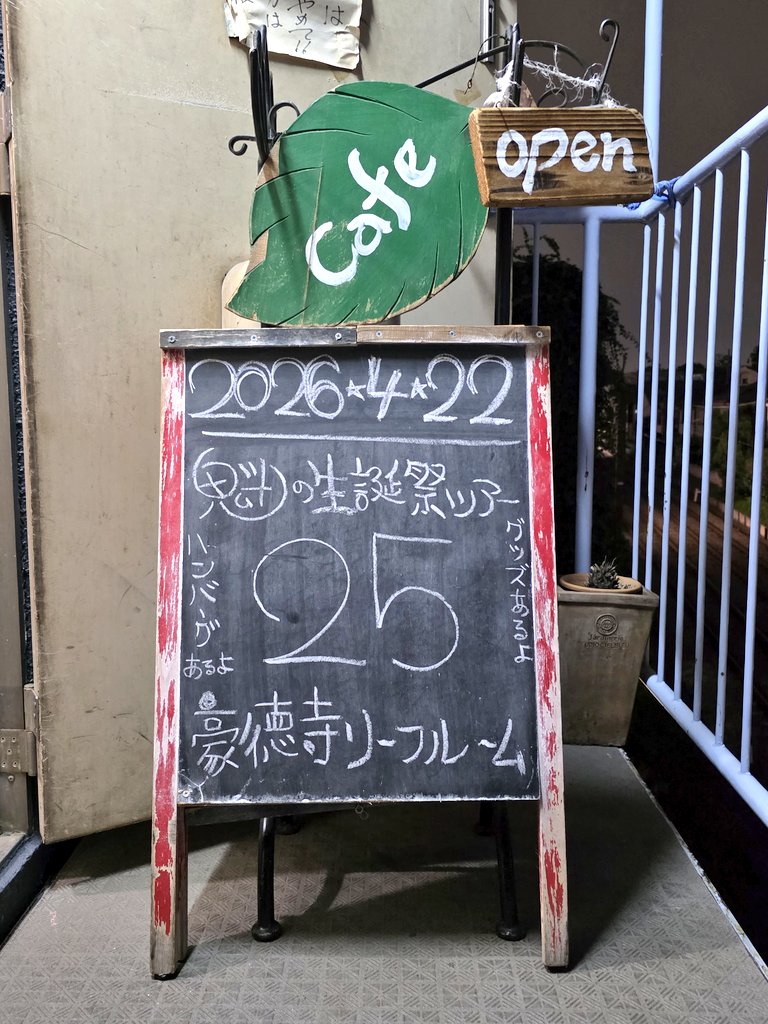 は
やめて!!
は
Cafe
open
2026★4★22
魁の生誕祭ツアー
25
グッズあるよ
ハンバーグ
あるよ
豪徳寺リーフルーム